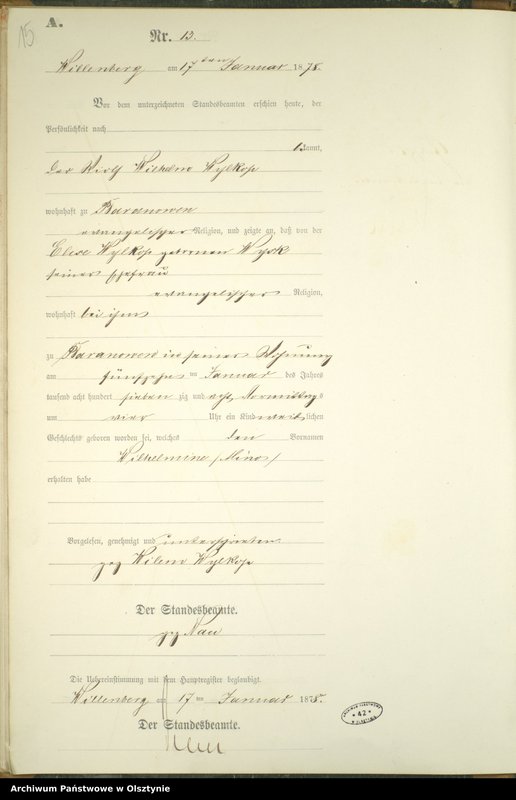 15
A.
Nr. 13.
Willenberg am 17ten Januar 1878.
Vor dem unterzeichneten Standesbeamten erschien heute, der
Persönlichkeit nach
kannt,
der Wirth Wilhelm Wylkop
wohnhaft zu Baranowen
evangelischer Religion, und zeigte an, daß von der
Wylkop geborenen
seiner Ehefrau
evangelischer Religion,
wohnhaft bei ihm
zu Baranowen in seiner Wohnung
am fünfzehn ten Januar des Jahres
tausend acht hundert sieben zig und acht Vormittags
um vier Uhr ein Kind weiblichen
Geschlechts geboren worden sei, welches den Vornamen
Wilhelmine (Mina)
erhalten habe
Vorgelesen, genehmigt und unterschrieben
gez Wilem Wylkop
Der Standesbeamte.
gez Nau
Die Uebereinstimmung mit dem Hauptregister beglaubigt.
Willenberg am 17 ten Januar 1878.
Der Standesbeamte.
Nau
* 42 *
Archiwum Państwowe w Olsztynie